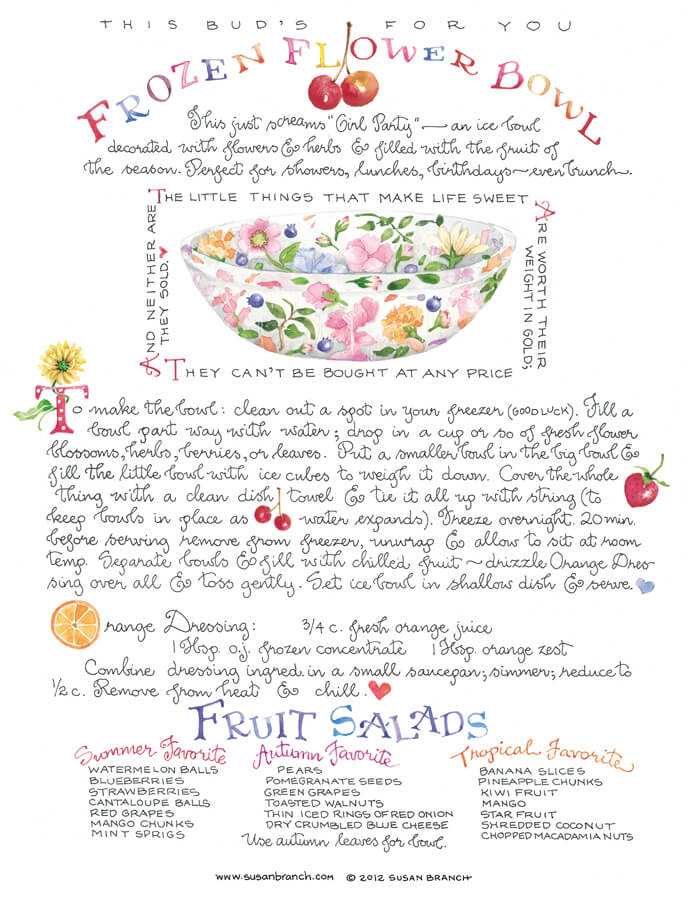 THIS BUD'S FOR YOU
FROZEN FLOWER BOWL
This just screams "Girl Party" — an ice bowl
decorated with flowers & herbs & filled with the fruit of
the season. Perfect for showers, lunches, birthdays ~ even brunch.
THE LITTLE THINGS THAT MAKE LIFE SWEET
ARE WORTH THEIR
WEIGHT IN GOLD;
THEY CAN'T BE BOUGHT AT ANY PRICE
AND NEITHER ARE
THEY SOLD.
To make the bowl: clean out a spot in your freezer (GOOD LUCK). Fill a
bowl part way with water; drop in a cup or so of fresh flower
blossoms, herbs, berries, or leaves. Put a smaller bowl in the big bowl &
fill the little bowl with ice cubes to weigh it down. Cover the whole
thing with a clean dish towel & tie it all up with string (to
keep bowls in place as water expands). Freeze overnight. 20 min.
before serving remove from freezer, unwrap & allow to sit at room
temp. Separate bowls & fill with chilled fruit ~ drizzle Orange Dres-
sing over all & toss gently. Set ice bowl in shallow dish & serve.
Orange Dressing: 3/4 c. fresh orange juice
1 Tbsp. o.j. frozen concentrate 1 Tbsp. orange zest
Combine dressing ingred. in a small saucepan; simmer; reduce to
1/2 c. Remove from heat & chill.
FRUIT SALADS
Summer Favorite
WATERMELON BALLS
BLUEBERRIES
STRAWBERRIES
CANTALOUPE BALLS
RED GRAPES
MANGO CHUNKS
MINT SPRIGS
Autumn Favorite
PEARS
POMEGRANATE SEEDS
GREEN GRAPES
TOASTED WALNUTS
THIN ICED RINGS OF RED ONION
DRY CRUMBLED BLUE CHEESE
Use autumn leaves for bowl.
Tropical Favorite
BANANA SLICES
PINEAPPLE CHUNKS
KIWI FRUIT
MANGO
STAR FRUIT
SHREDDED COCONUT
CHOPPED MACADAMIA NUTS
www.susanbranch.com © 2012 SUSAN BRANCH